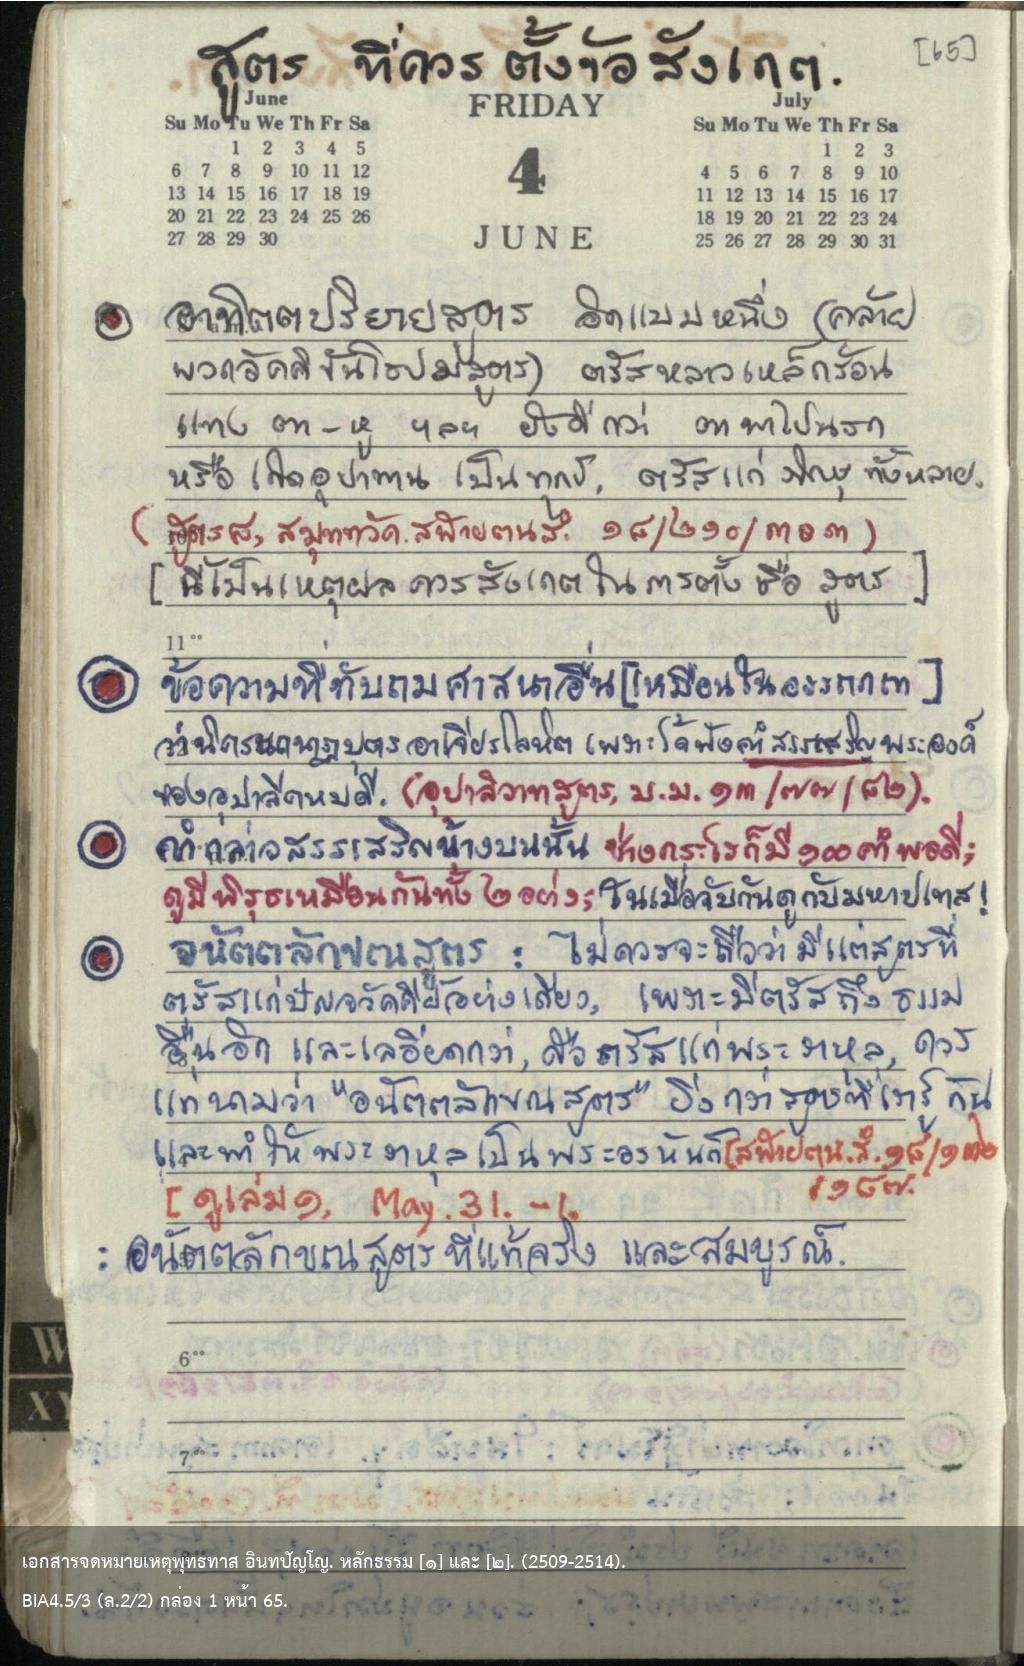 [๖๕]
สูตร ที่ควรตั้งข้อสังเกต.
June
Su Mo Tu We Th Fr Sa
1 2 3 4 5
6 7 8 9 10 11 12
13 14 15 16 17 18 19
20 21 22 23 24 25 26
27 28 29 30
FRIDAY
4
JUNE
July
Su Mo Tu We Th Fr Sa
1 2 3
4 5 6 7 8 9 10
11 12 13 14 15 16 17
18 19 20 21 22 23 24
25 26 27 28 29 30 31
อาทิตตปริยายสูตร อีกแบบหนึ่ง (คล้าย
พวกอัคคิขันโธปมสูตร) ตรัสหลาวเหล็กร้อน
แทง ตา - หู ฯลฯ ยังดีกว่า ตาพาไปนรก
หรือ เกิดอุปาทาน เป็นทุกข์, ตรัสแก่ ภิกษุ ทั้งหลาย.
(สูตร ๘, สมุททวัค. สฬายตนสํ. ๑๘/๒๑๐/๓๐๓)
[นี่เป็นเหตุผล ควรสังเกตในการตั้ง ชื่อ สูตร]
11⁰⁰
ข้อความที่ทับถมศาสนาอื่น [เหมือนในอรรถกถา]
ว่านิครนถนาฏบุตร อาเจียรโลหิต เพราะได้ฟังคำสรรเสริญพระองค์
ของอุปาลีคหบดี. (อุปาลิวาทสูตร, ม.ม. ๑๓/๗๗/๘๒).
คำกล่าวสรรเสริญข้างบนนั้น ช่างกระไรก็มี ๑๐๐ คำ พอดี;
ดูมีพิรุธเหมือนกันทั้ง ๒ อย่าง; ในเมื่อจับกันดูกับมหาปเทส!
อนัตตลักขณสูตร : ไม่ควรจะถือว่า มีแต่สูตรที่
ตรัสแก่ปัญจวัคคีย์อย่างเดียว, เพราะมีตรัสถึง ธรรม
อื่นอีก และละเอียดกว่า, คือตรัสแก่พระราหุล, ควร
แก่นามว่า "อนัตตลักขณสูตร" ยิ่งกว่า สูตรที่เรารู้ กัน
และทำให้พระราหุลเป็นพระอรหันต์ [สฬายตน. สํ. ๑๘/๑๓๒
/๑๘๗.
[ดูเล่ม ๑, May. 31. -1.
: อนัตตลักขณสูตร ที่แท้จริง และสมบูรณ์.
6⁰⁰
7⁰⁰
W
XY
เอกสารจดหมายเหตุพุทธทาส อินทปัญโญ. หลักธรรม [๑] และ [๒]. (2509-2514).
BIA4.5/3 (ล.2/2) กล่อง 1 หน้า 65.